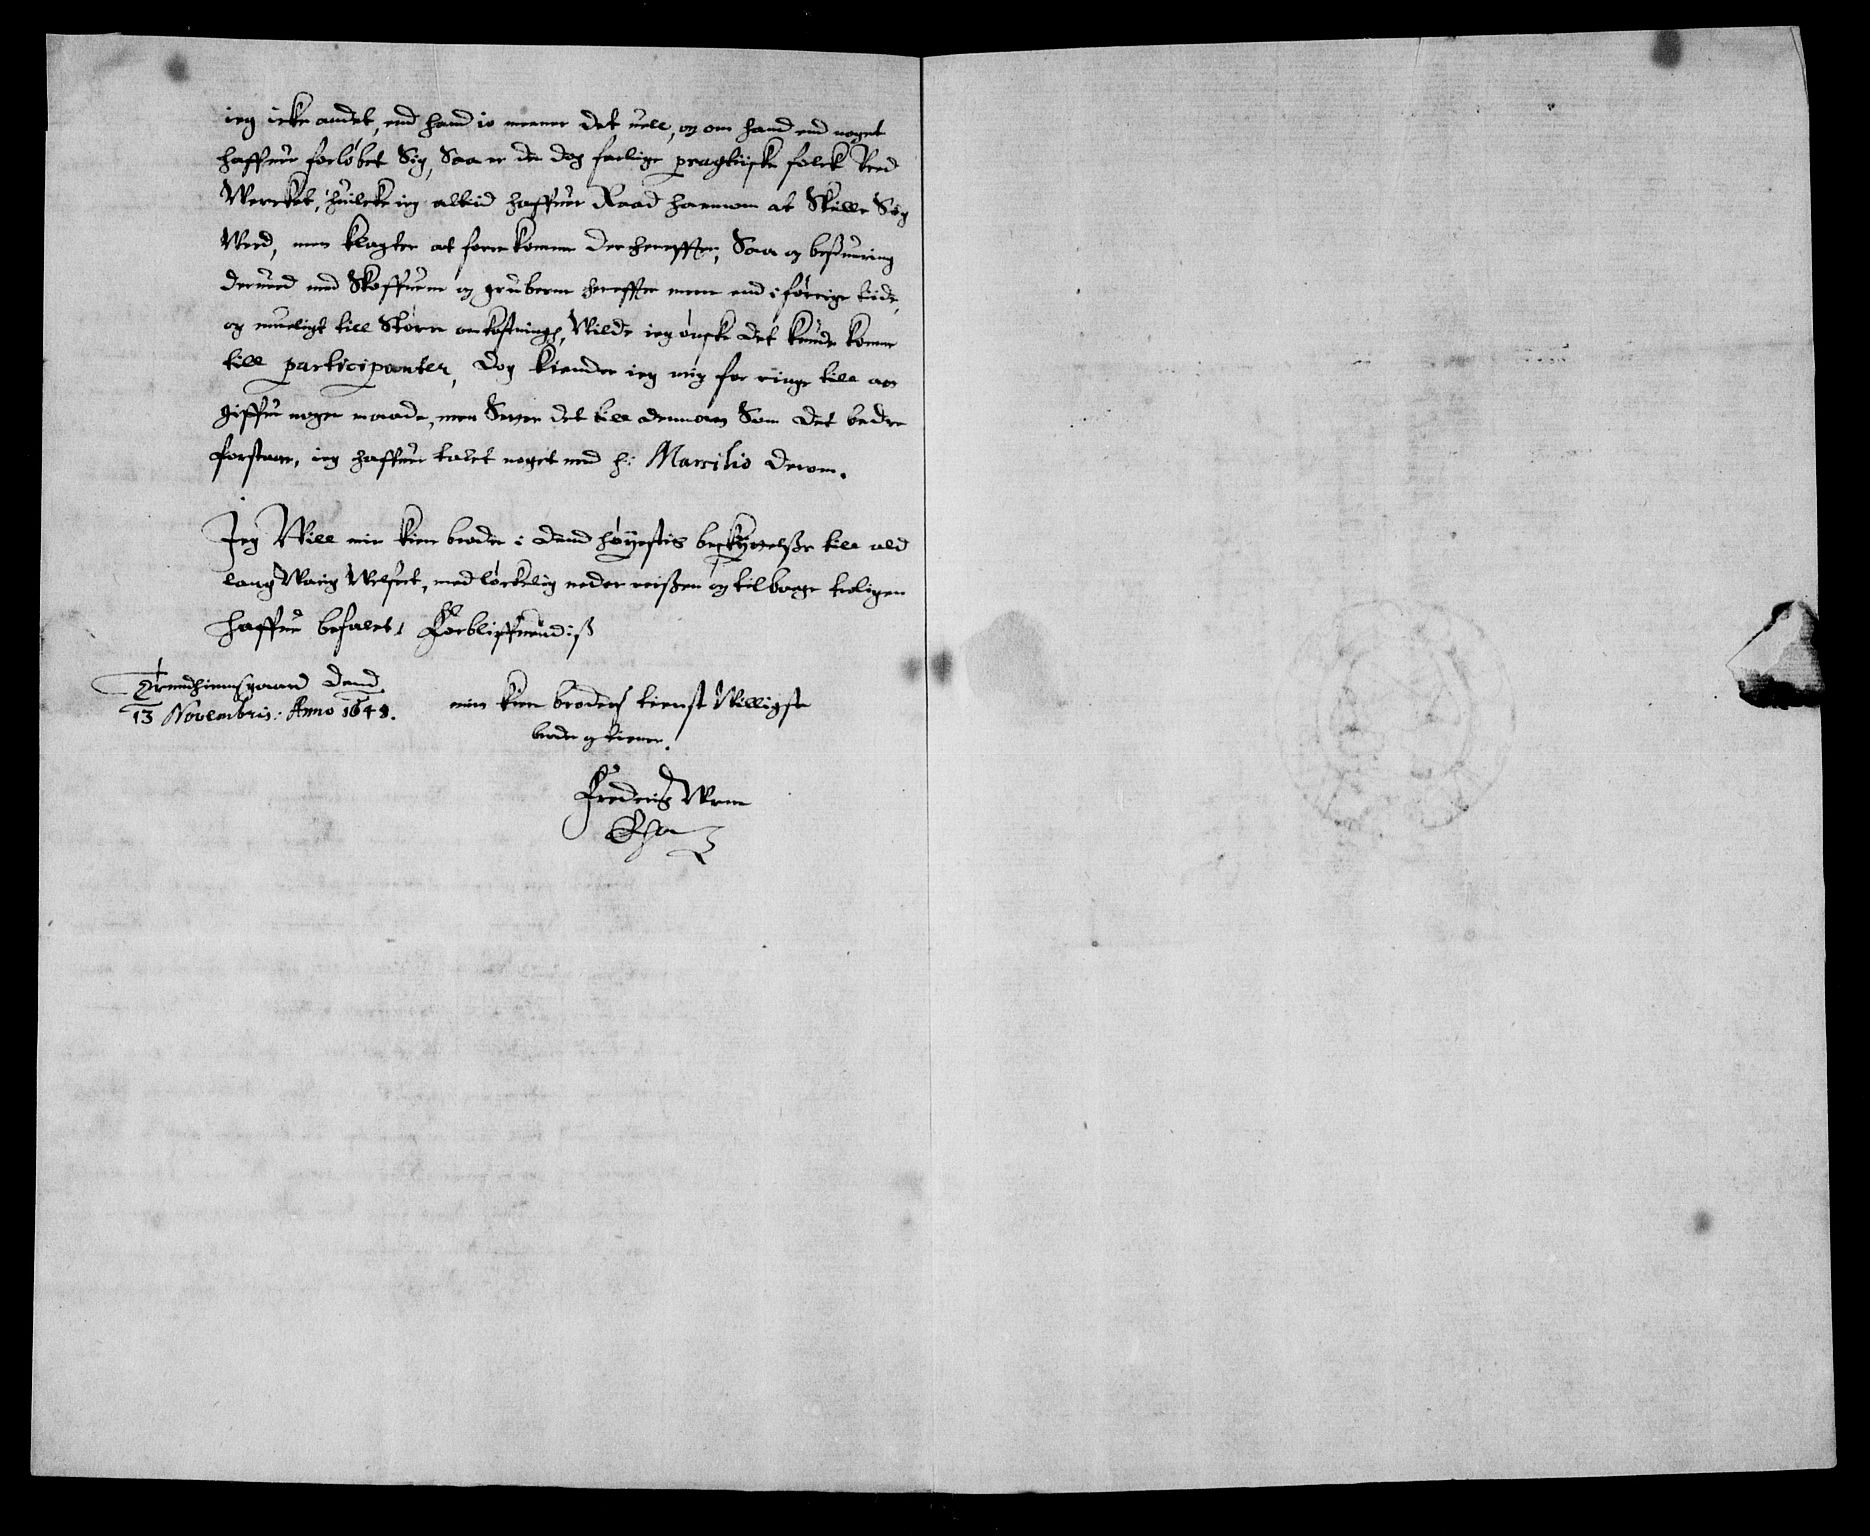 ieg icke andet, end hand io meener det uell, og om hand end noget
haffuer forløbet Sig, Saa er da dog saelige pragtiske folck Ved
Vercket, huilcke ieg altiid haffuer Raad hannom at Skille Sig
Ved, men klagter at forrekomme der hereffter, Saa og besuering
derued med Skoffuene og gruberne hereffter meere end i forrige tiide,
og mueligt till Større omkostning, Vilde ieg ønske det kunde komme
till participanter, Dog kiender ieg mig for ringe till at
giffue nogen maade, men Setter det till dennom Som det bedre
forstaar, ieg haffuer talet noget med h: Marsilio derom.
Jeg Will min kiere broder i dend høyestis beskyttelße till ald
lang Varig Velfert, med løckelig neder reißen og tilbaage troligen
haffue befalet, Forbliffuendiß
Trundhiemsgaard Dend
13 Novembris: Anno 1648.
min kiere broders tienst Villigste
broder og tienere.
Frederig Vrne
Eha